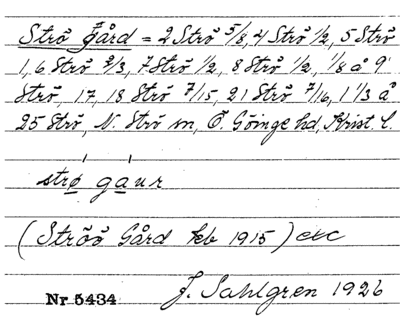 Strö gård = 2 Strö 5/8, 4 Strö 1/2, 5 Strö
1, 6 Strö 2/3, 7 Strö 1/2, 8 Strö 1/2, 1/8 å 9
Strö, 17, 18 Strö 7/15, 21 Strö 7/16, 1 1/3 å
25 Strö, N. Strö sn, Ö. Göinge hd, Krist. l.
strø gaur
(Ströö Gård keb 1915) etc
Nr 5434 J. Sahlgren 1926